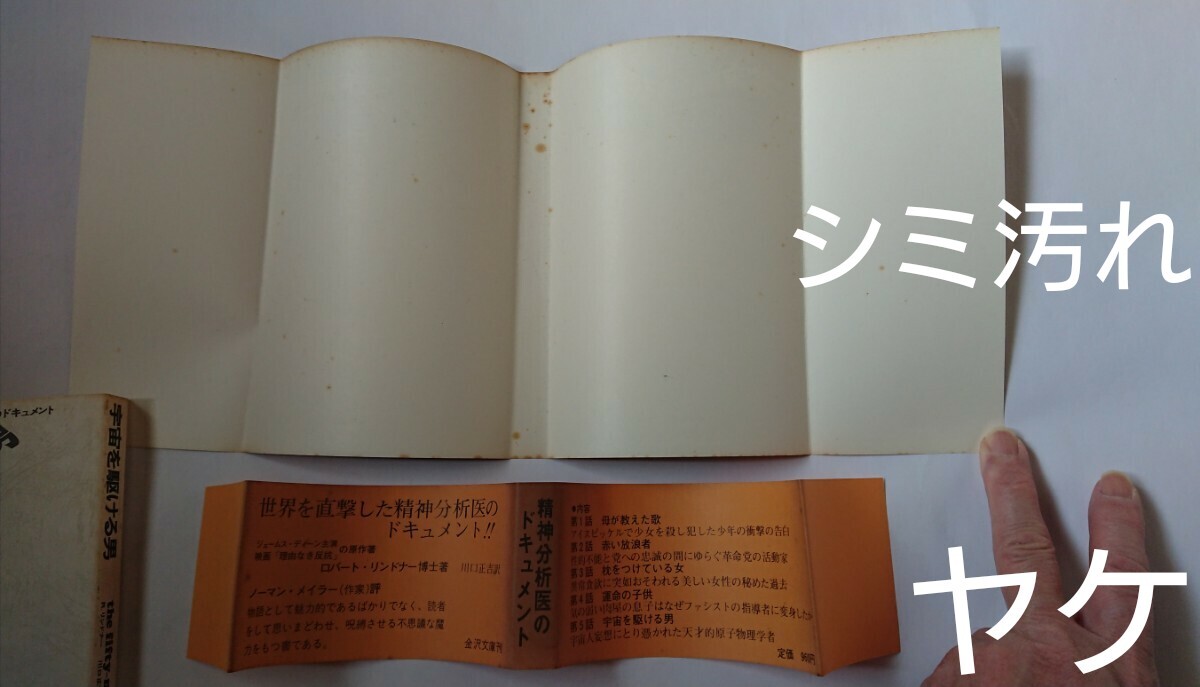 シミ汚れ
ヤケ
のドキュメント
宇宙を駆ける男
the fifty-m
世界を直撃した精神分析医の
ドキュメント!!
ジェームス・ディーン主演
映画「理由なき反抗」の原作者
ロバート・リンドナー博士著 川口正吉訳
ノーマン・メイラー(作家)評
物語として魅力的であるばかりでなく、読者
をして思いまどわせ、呪縛させる不思議な魔
力をもつ書である。
金沢文庫刊
精神分析医の
ドキュメント
■内容
第1話 母が教えた歌
アイスピッケルで少女を殺し犯した少年の衝撃の告白
第2話 赤い放浪者
性的不能と党への忠誠の間にゆらぐ革命党の活動家
第3話 枕をつけている女
異常食欲に突如おそわれる美しい女性の秘めた過去
第4話 運命の子供
気の弱い肉屋の息子はなぜファシストの指導者に変身したか
第5話 宇宙を駆ける男
宇宙人妄想にとり憑かれた天才的原子物理学者
定価 960円